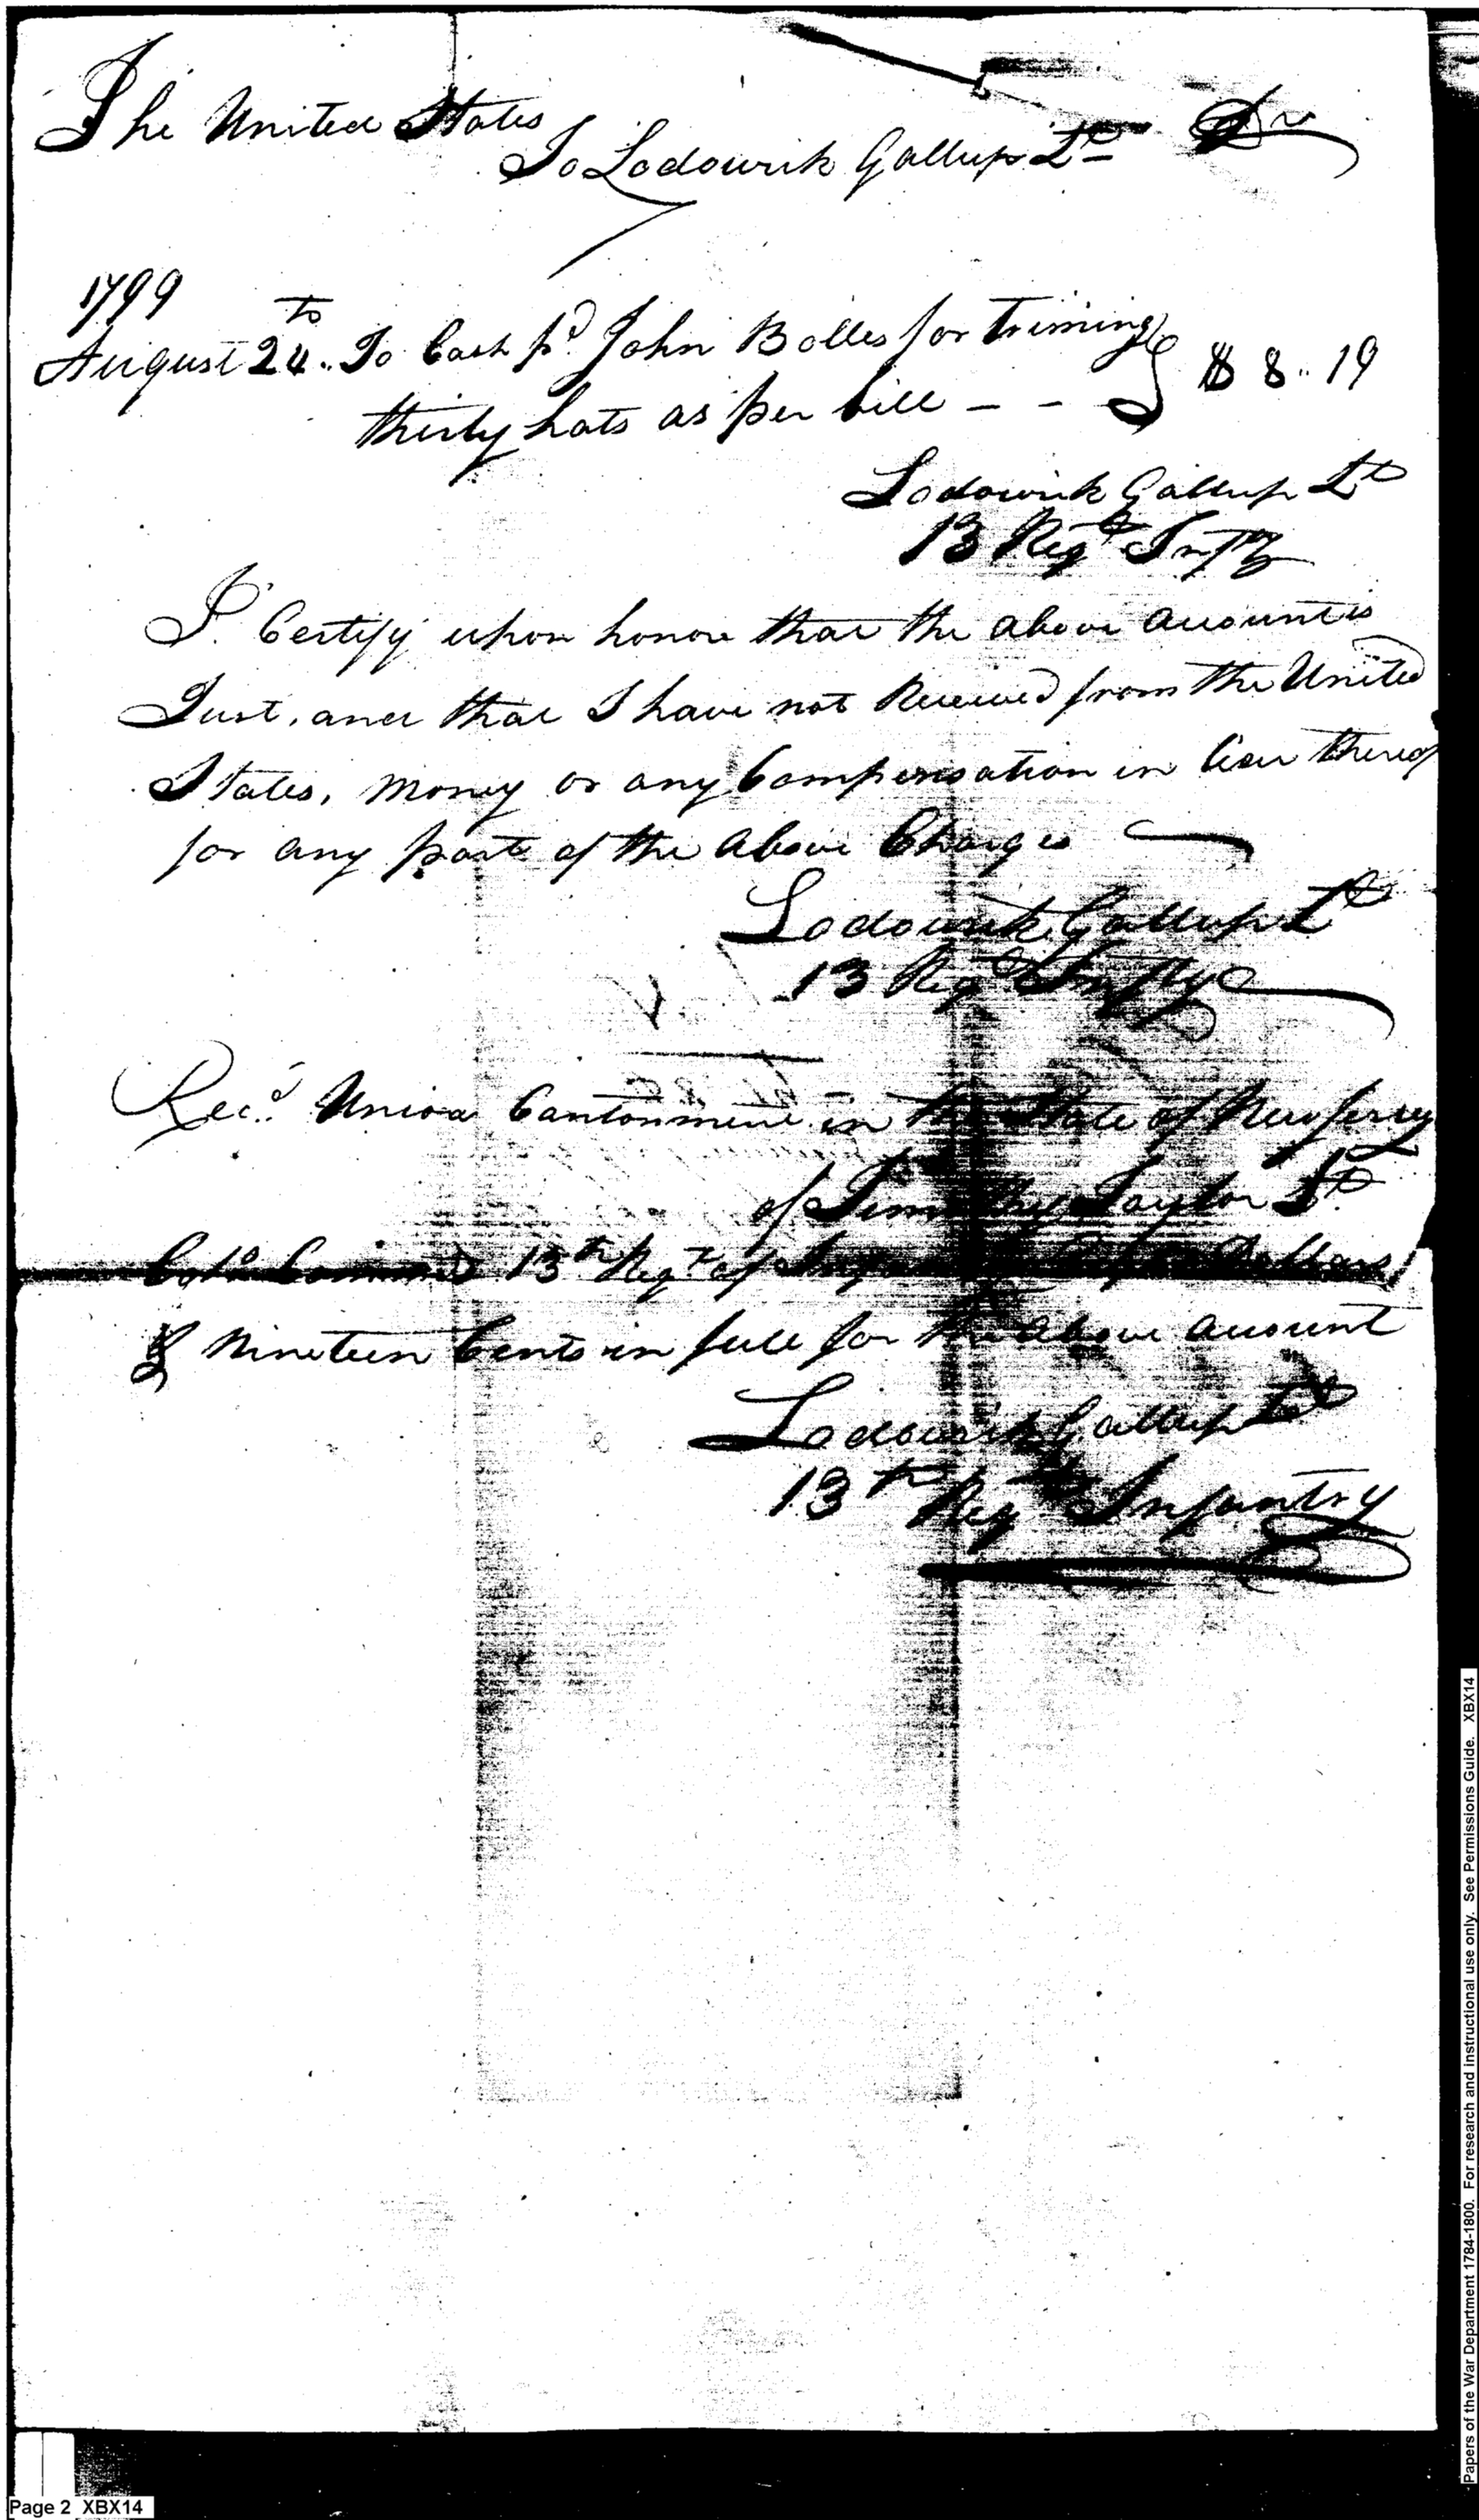 The United States Dr
To Lodowick Gallup Lt
1799
August 24.th To Cash pd. John Bolles for Triming } $ 8.. 19
thirty hats as per bill - -
Lodowick Gallup Lt
13 Regt Infty
I. Certify upon honor that the above account is
Just, and that I have not Received from the United
States, money or any Compensation in lieu thereof
for any part of the above Charges
Lodowick Gallup Lt
13 Regt Infty
Recd. Union Cantonment in the State of New Jersey
of Timothy Taylor Lt.
Colo. Command 13th Regt of Dollars
& Nineteen Cents in full for the above account
Lodowick Gallup Lt
13th Regt Infantry
Page 2 XBX14
Papers of the War Department 1784-1800. For research and instructional use only. See Permissions Guide. XBX14